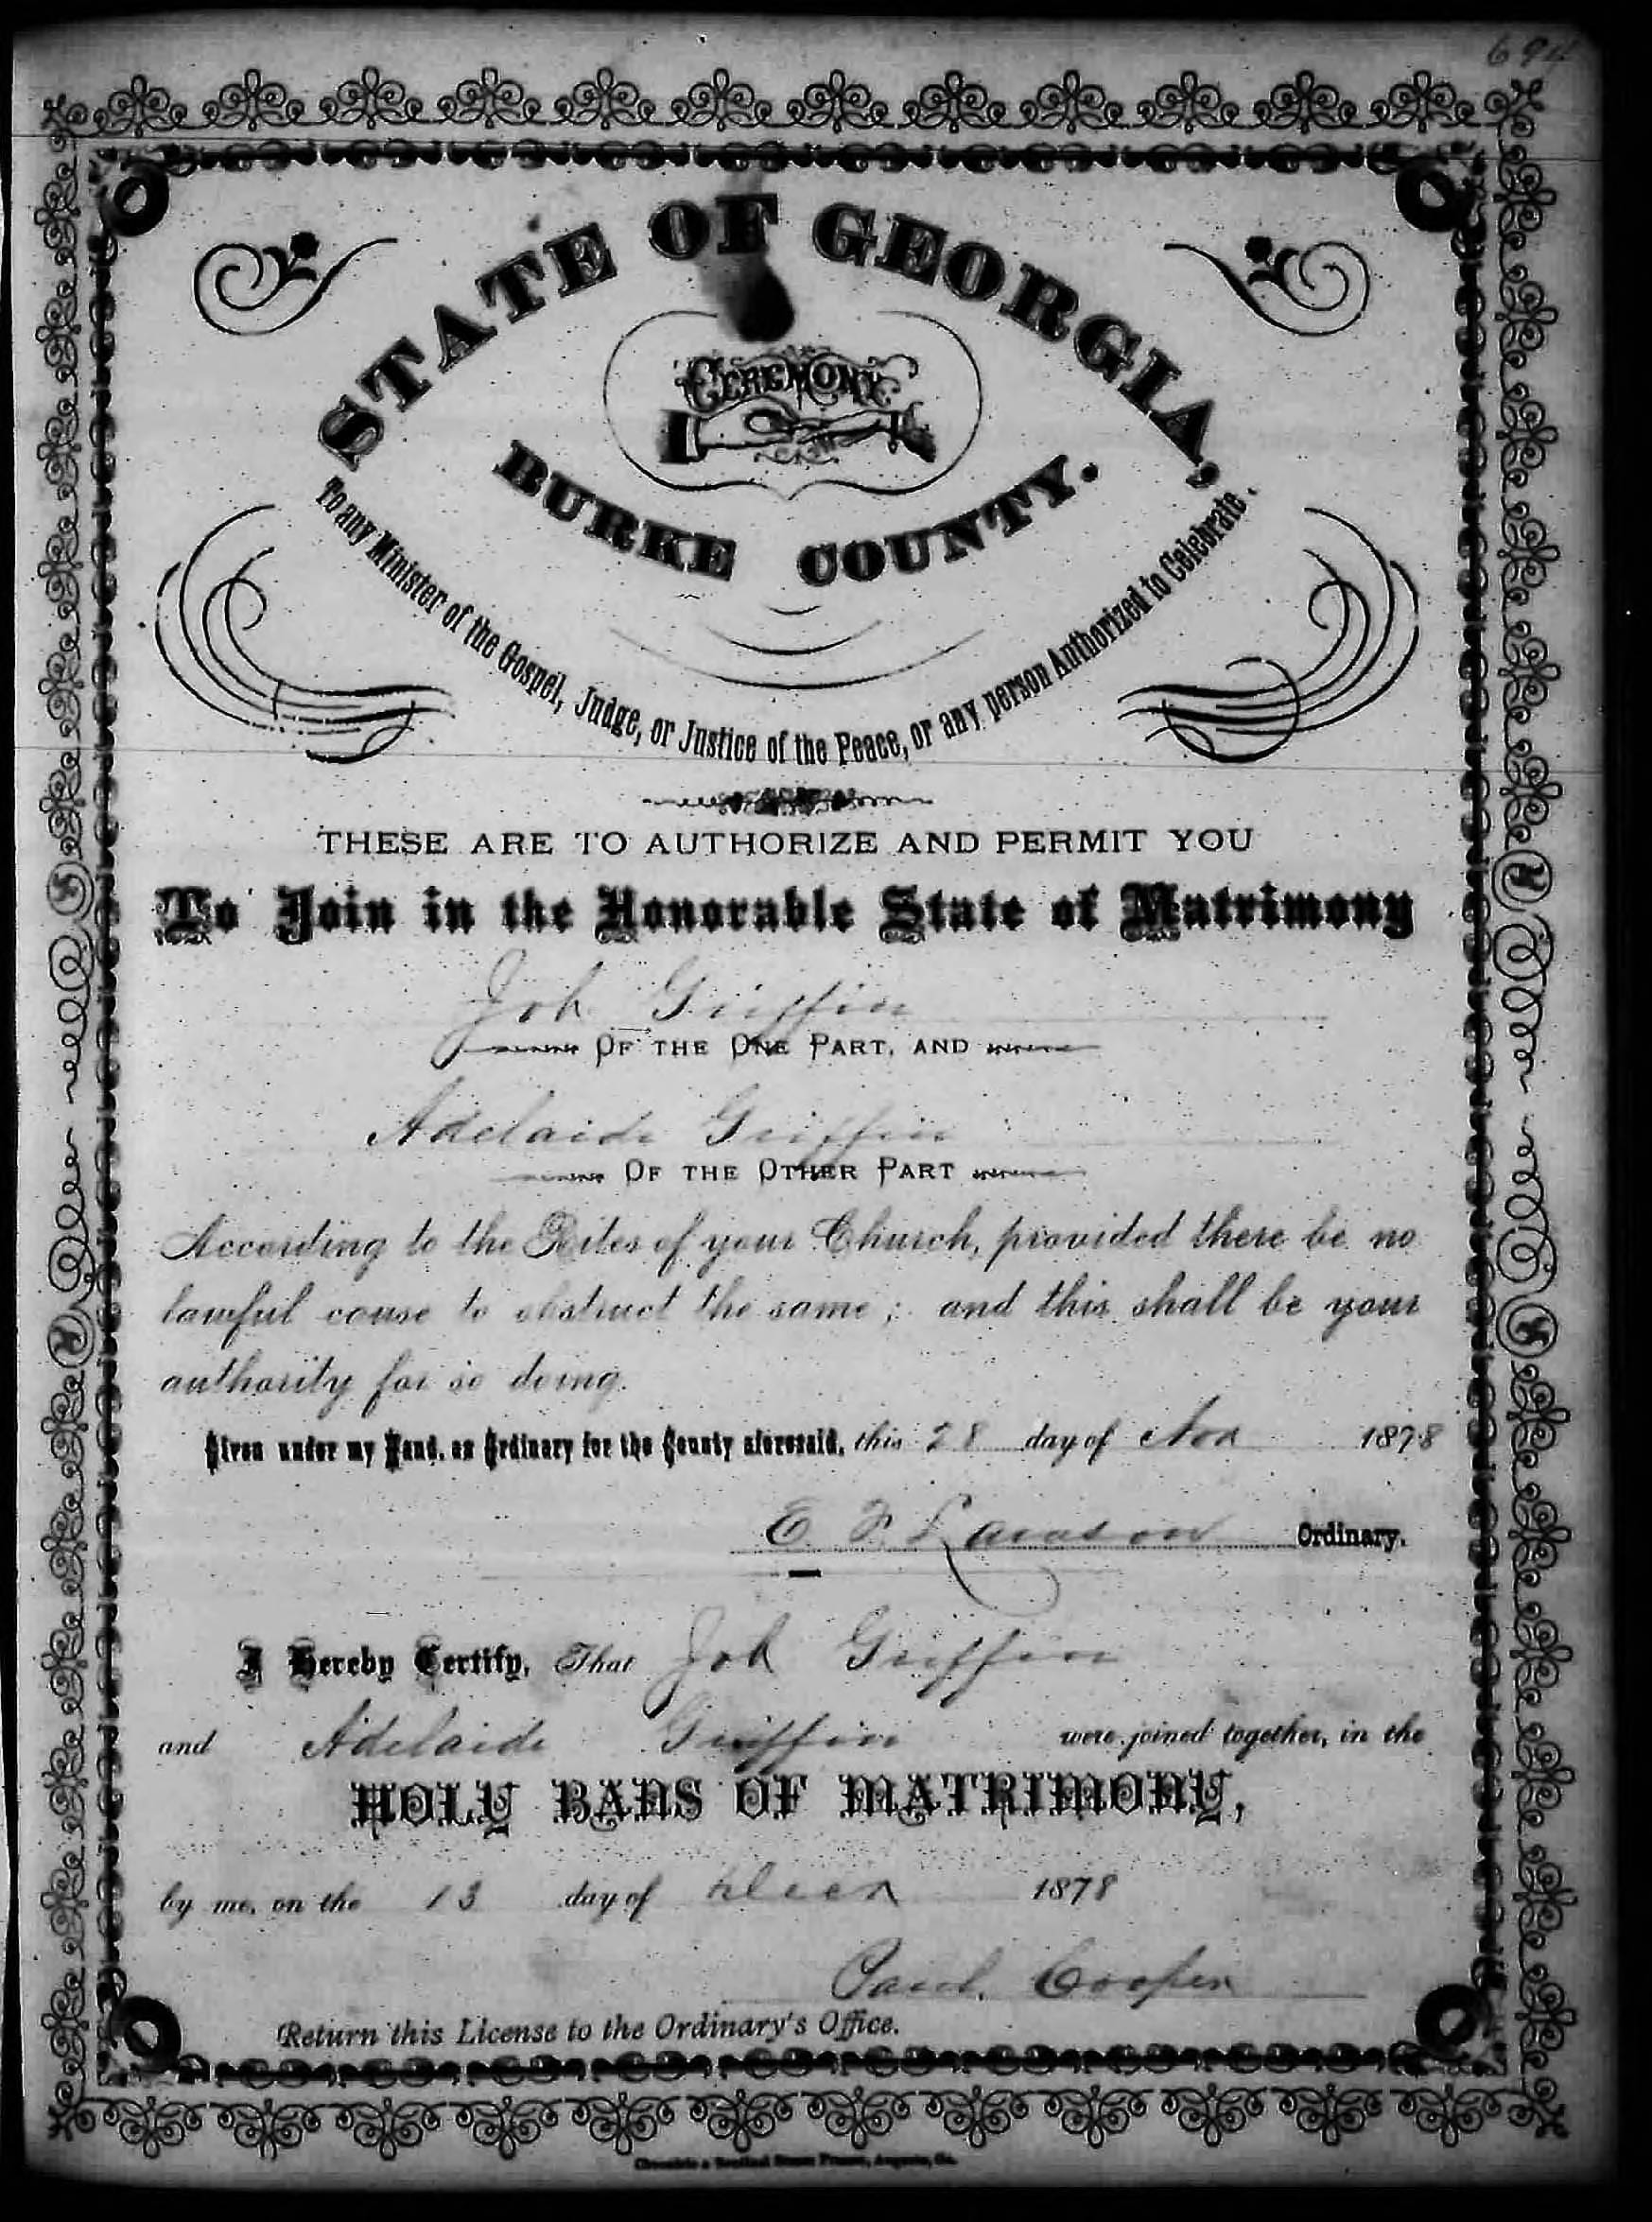 694
STATE OF GEORGIA,
CEREMONY
BURKE COUNTY.
To any Minister of the Gospel, Judge, or Justice of the Peace, or any person Authorized to Celebrate.
THESE ARE TO AUTHORIZE AND PERMIT YOU
To Join in the Honorable State of Matrimony
Job Griffin
OF THE ONE PART, AND
Adelaide Griffin
OF THE OTHER PART
According to the Rites of your Church, provided there be no
lawful cause to obstruct the same; and this shall be your
authority for so doing.
Given under my Hand, as Ordinary for the County aforesaid, this 28 day of Nov 1878
E. F. Lawson Ordinary.
I Hereby Certify, That Job Griffin
and Adelaide Griffin were joined together, in the
HOLY BANS OF MATRIMONY,
by me, on the 13 day of 1878
Paul. Cooper
Return this License to the Ordinary's Office.
Chronicle & Sentinel Steam Presses, Augusta, Ga.